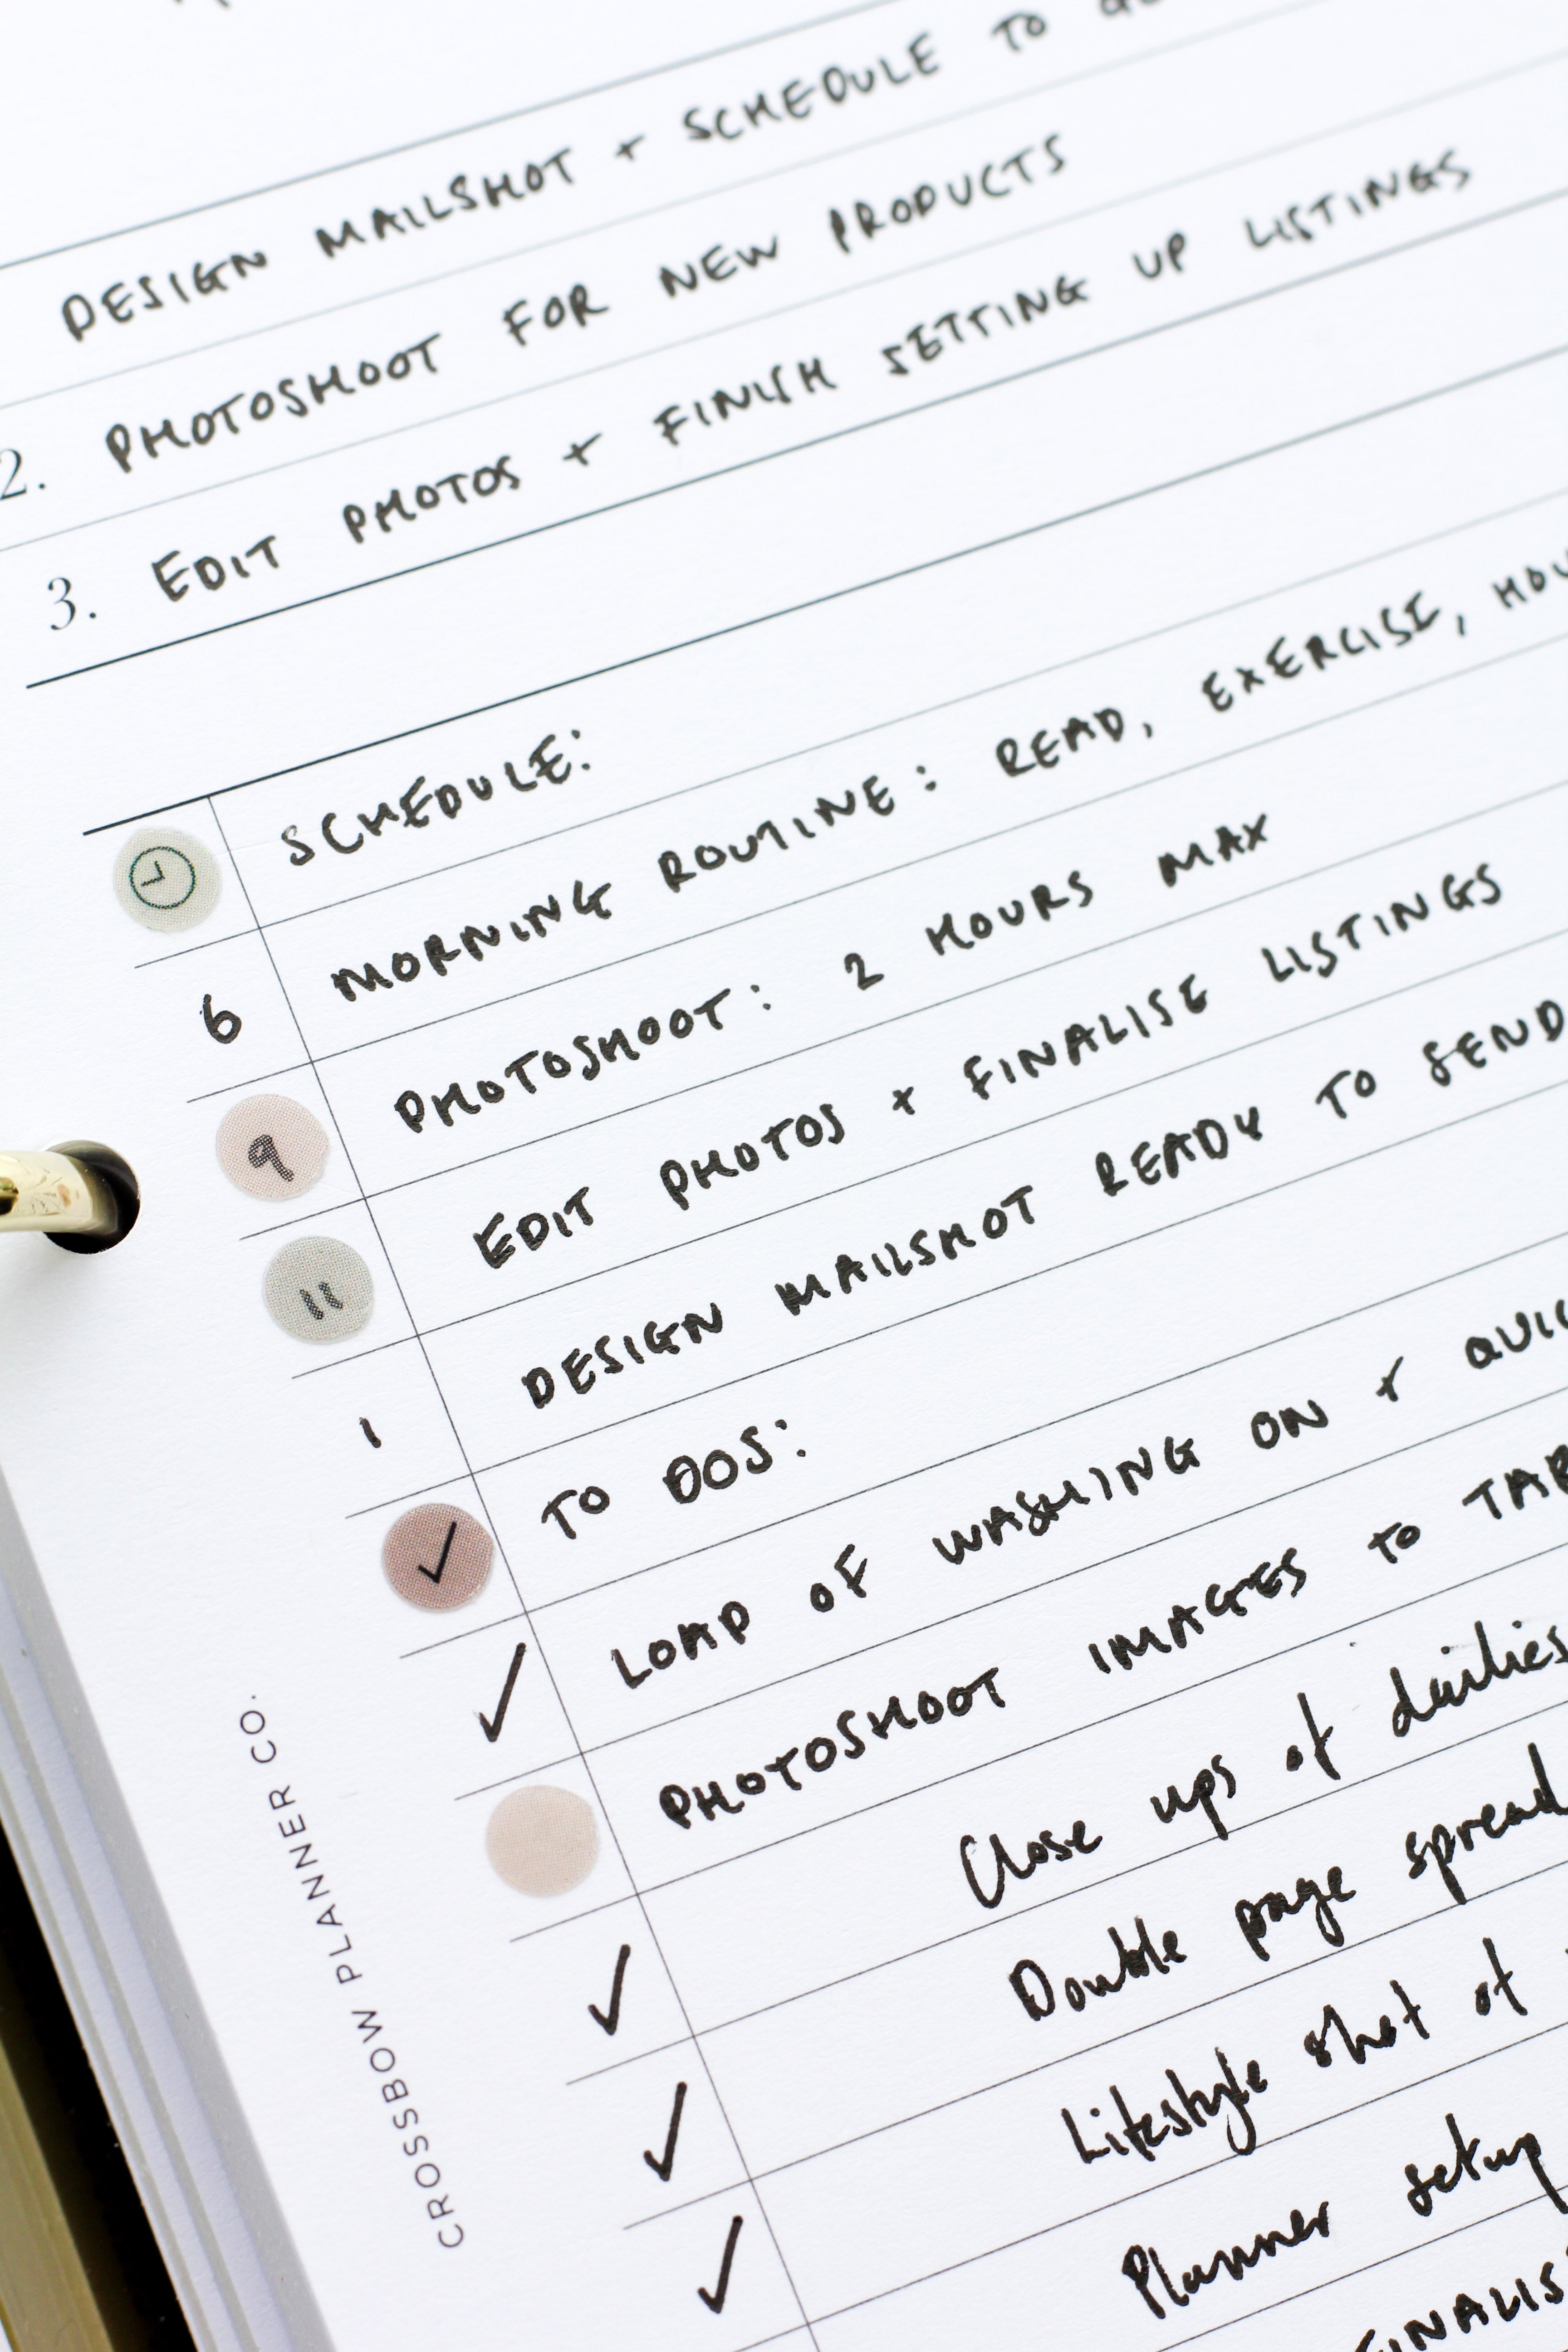 DESIGN MAILSHOT + SCHEDULE TO
2. PHOTOSHOOT FOR NEW PRODUCTS
3. EDIT PHOTOS + FINISH SETTING UP LISTINGS
SCHEDULE:
6 MORNING ROUTINE: READ, EXERCISE,
9 PHOTOSHOOT: 2 HOURS MAX
11 EDIT PHOTOS + FINALISE LISTINGS
1 DESIGN MAILSHOT READY TO SEND
TO DOS:
LOAD OF WASHING ON +
PHOTOSHOOT IMAGES TO
Close ups of dailies
Double page spread
Lifestyle shot of
Planner setup
CROSSBOW PLANNER CO.